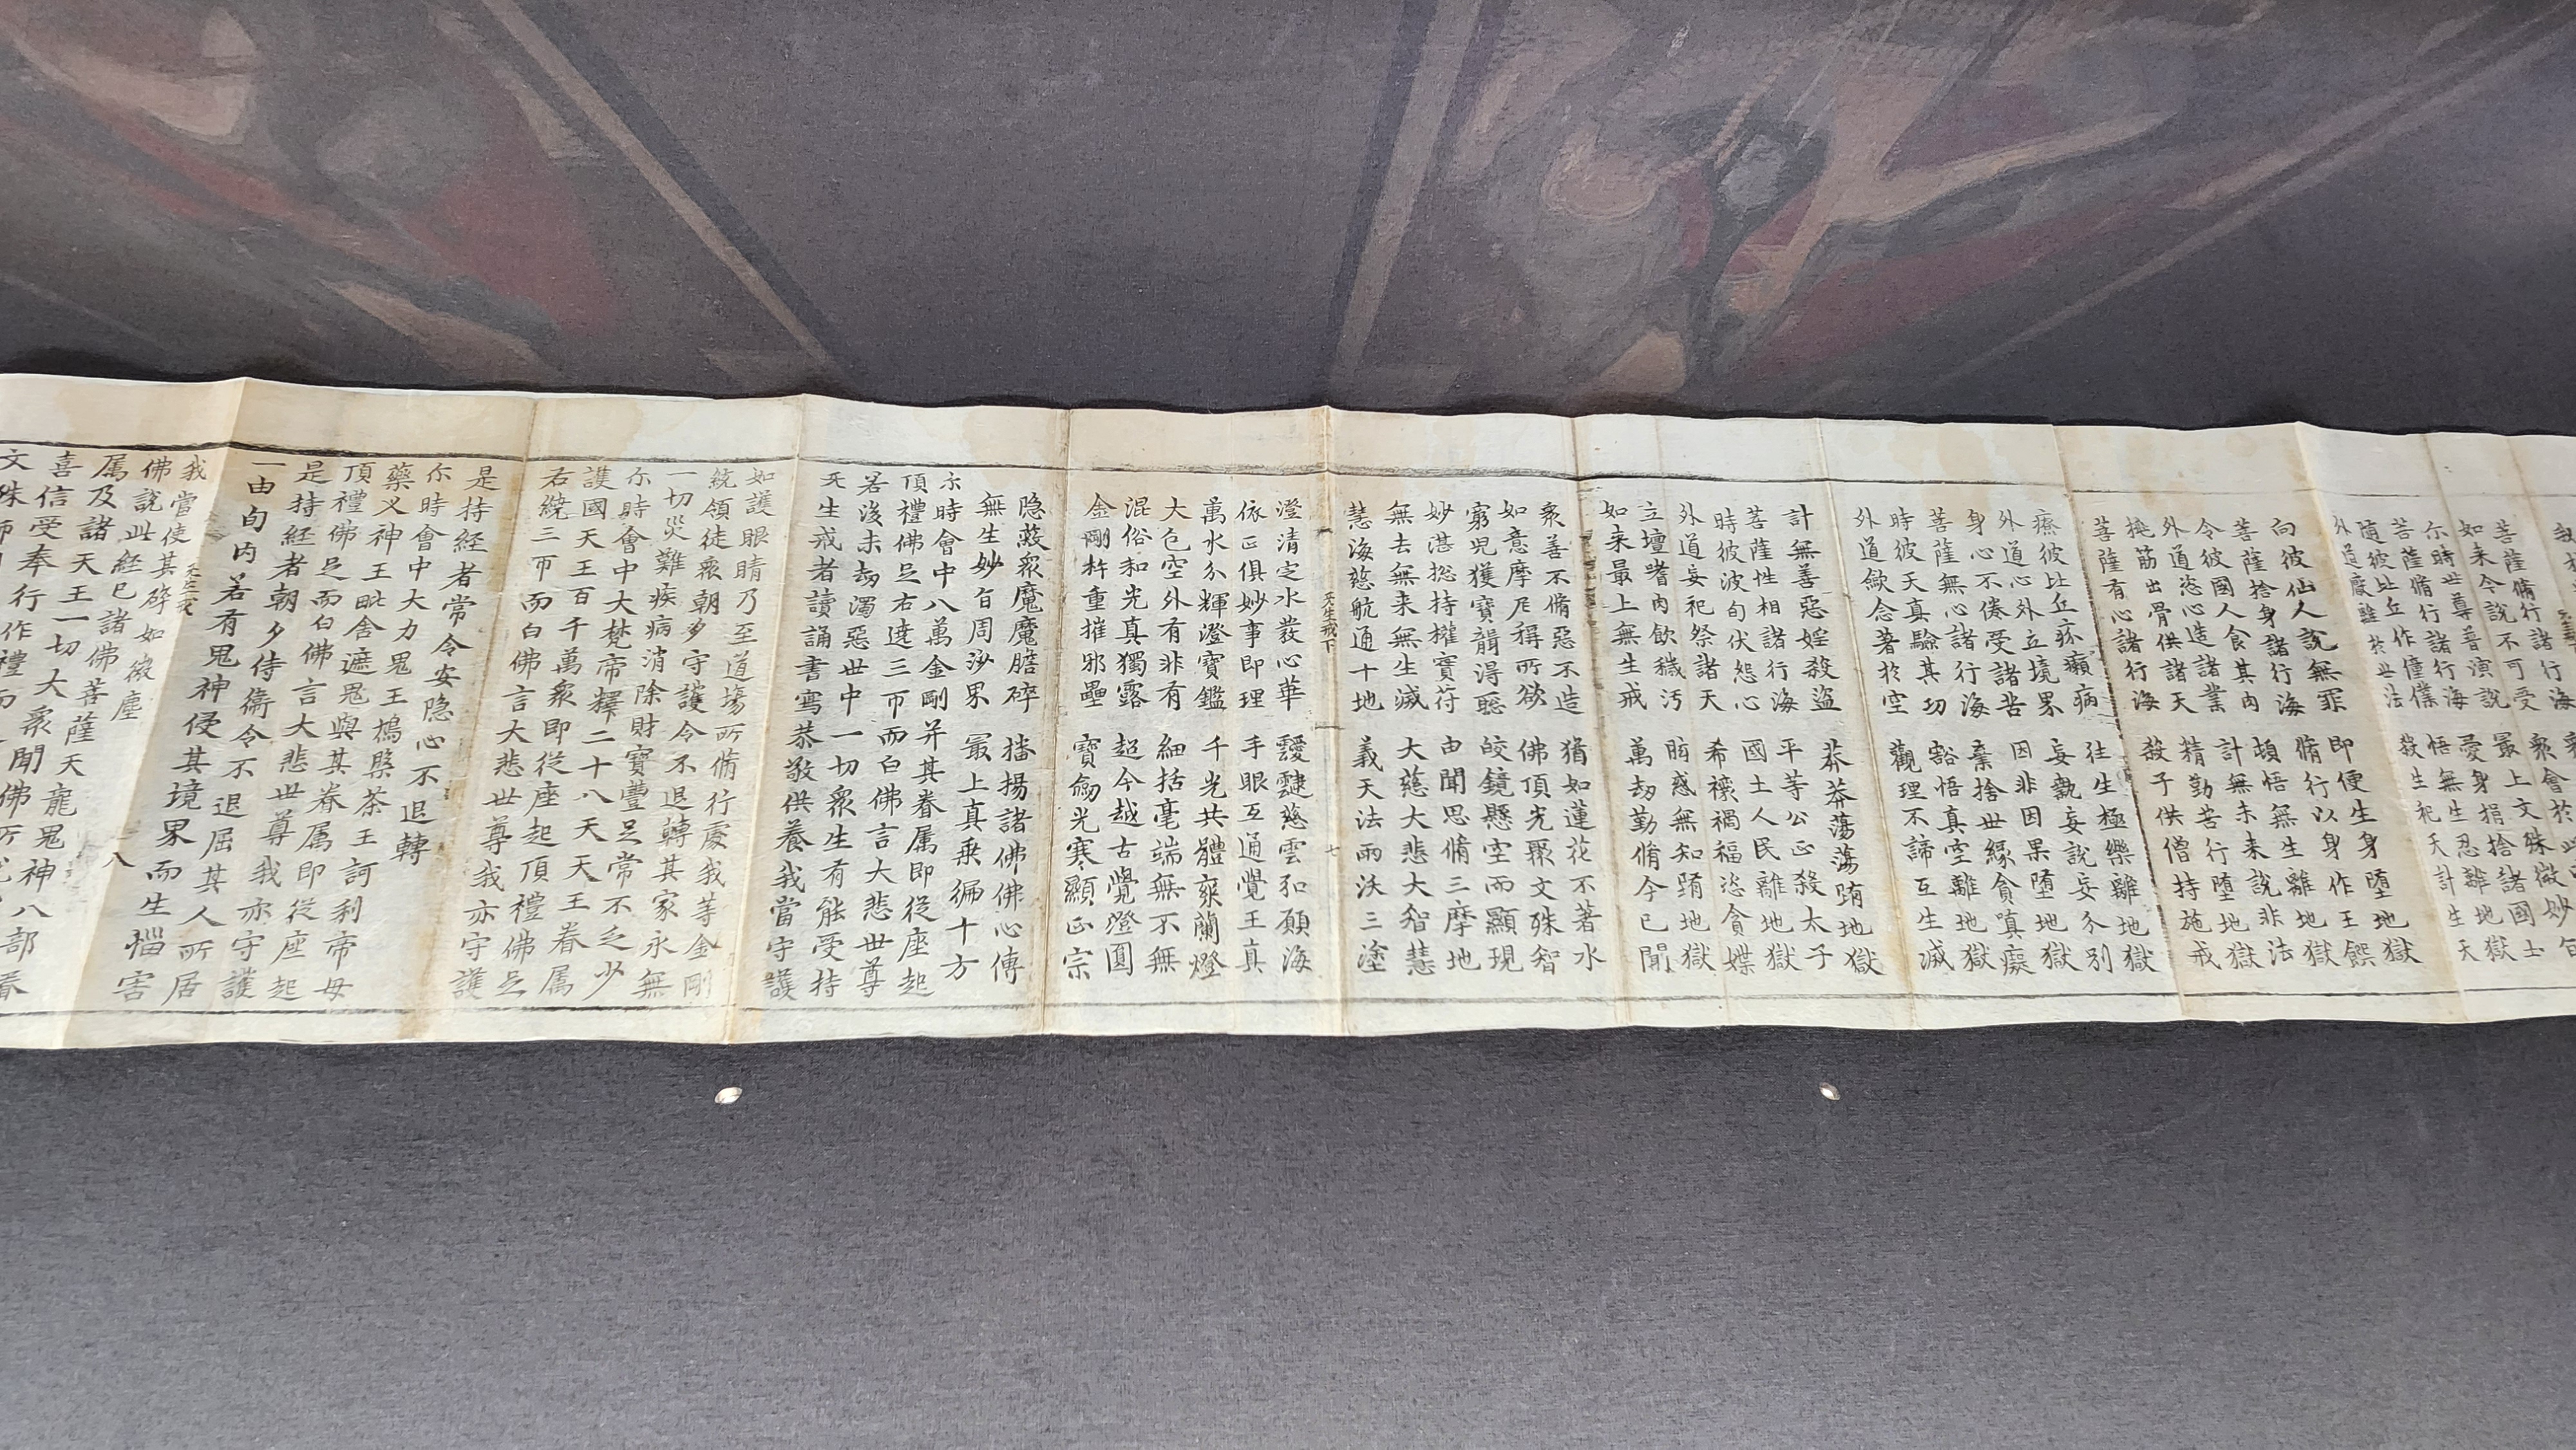 菩薩脩行諸行海
如来令說不可受衆會於此
尔時世尊普演說最上文殊微妙旨
菩薩脩行諸行海愛身捐捨諸國土
随彼比丘作僮僕悟無生忍離地獄
外道廢離於世法殺生祀天計生天
向彼仙人說無罪即便生身堕地獄
菩薩捨身諸行海脩行以身作王饌
令彼國人食其肉頓悟無生離地獄
外道恣心造諸業計無未来說非法
挑筋出骨供諸天精勤苦行堕地獄
菩薩有心諸行海殺子供僧持施戒
療彼比丘疥癩病往生極樂離地獄
外道心外立境界妄執妄說妄分別
身心不倦受諸苦因非因果堕地獄
菩薩無心諸行海棄捨世緣貪嗔癡
時彼天真驗其功豁悟真空離地獄
外道斂念著於空觀理不諦互生滅
計無善惡婬殺盜莽莽蕩蕩堕地獄
菩薩性相諸行海平等公正殺太子
時彼波旬伏怨心國土人民離地獄
外道妄祀祭諸天希禳禍福恣貪媟
立壇嗜肉飲穢汚惑無知堕地獄
如来最上無生戒萬劫勤脩今已聞
衆善不脩惡不造猶如蓮花不著水
如意摩尼稱所欲佛頂光聚文殊智
窮児獲寶聾得聦皎鏡懸空而顯現
妙湛揔持權實苻由聞思脩三摩地
無去無来無生滅大慈大悲大智慧
慧海慈航通十地義天法雨沃三塗
无生戒下 七
澄清定水發心華靉靆慈雲弘願海
依正俱妙事即理手眼互通覺王真
萬水分輝澄寶鑑千光共體蘭燈
大包空外有非有細括毫端無不無
混俗和光真獨露超今越古覺澄圓
金剛杵重摧邪壘寶劒光寒顯正宗
隐蔽衆魔魔膽碎播揚諸佛佛心傳
無生妙旨周沙界最上真乗徧十方
尔時會中八萬金剛并其眷属即從座起
頂禮佛足右遶三帀而白佛言大悲世尊
若後末劫濁惡世中一切衆生有能受持
无生戒者讀誦書寫恭敬供養我當守護
如護眼睛乃至道場所脩行處我等金剛
統領徒衆朝夕守護令不退轉其家永無
一切災難疾病消除財寶豐足常不乏少
尔時會中大梵帝釋二十八天天王眷属
護國天王百千萬衆即從座起頂禮佛足
右繞三帀而白佛言大悲世尊我亦守護
是持経者常令安隐心不退轉
尔時會中大力鬼王鳩槃荼王訶利帝母
藥叉神王毗舍遮鬼與其眷属即從座起
頂禮佛足而白佛言大悲世尊我亦守護
是持経者朝夕侍衞令不退屈其人所居
一由旬内若有鬼神侵其境界而生惱害
无生戒 八
我當使其碎如微塵
佛說此経已諸佛菩薩天龍鬼神八部眷
属及諸天王一切大衆聞佛所
喜信受奉行作禮而
文殊師